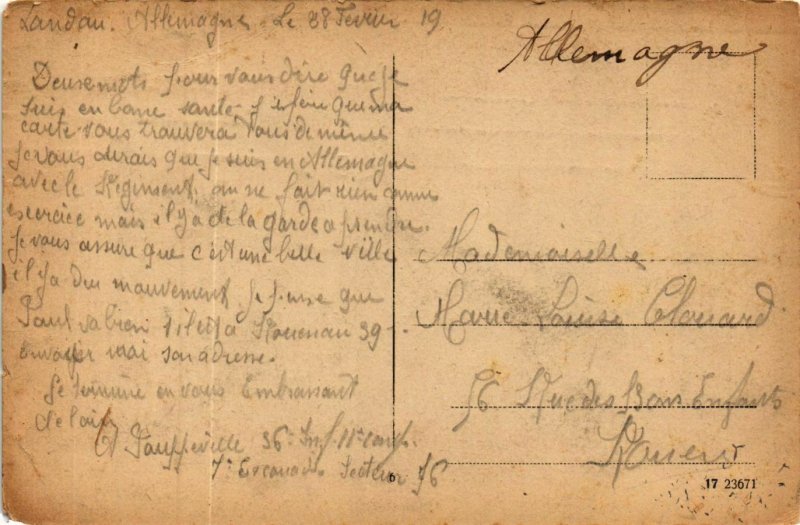 Landau. Allemagne Le 28 Fevrier 19
Allemagne
Deux mots pour vous dire que je
suis en bone santé j'espère que ma
carte vous trouvera vous de même
je vous dirais que je suis en Allemagne
avec le Regiment, on ne fait rien comme
exercice mais il y a de la garde a prendre.
Je vous assure que c'est une belle ville
il y a du mouvement Je pense que
Paul va bien s'il est à Rouen au 39
envoyer moi son adresse.
Je termine en vous Embrassant
de loin
36e Inf 11e comp.
7e Escouade Secteur 76
Mademoiselle
Marie Louise
56 Rue des Bons Enfants
Rouen
6
17 23671